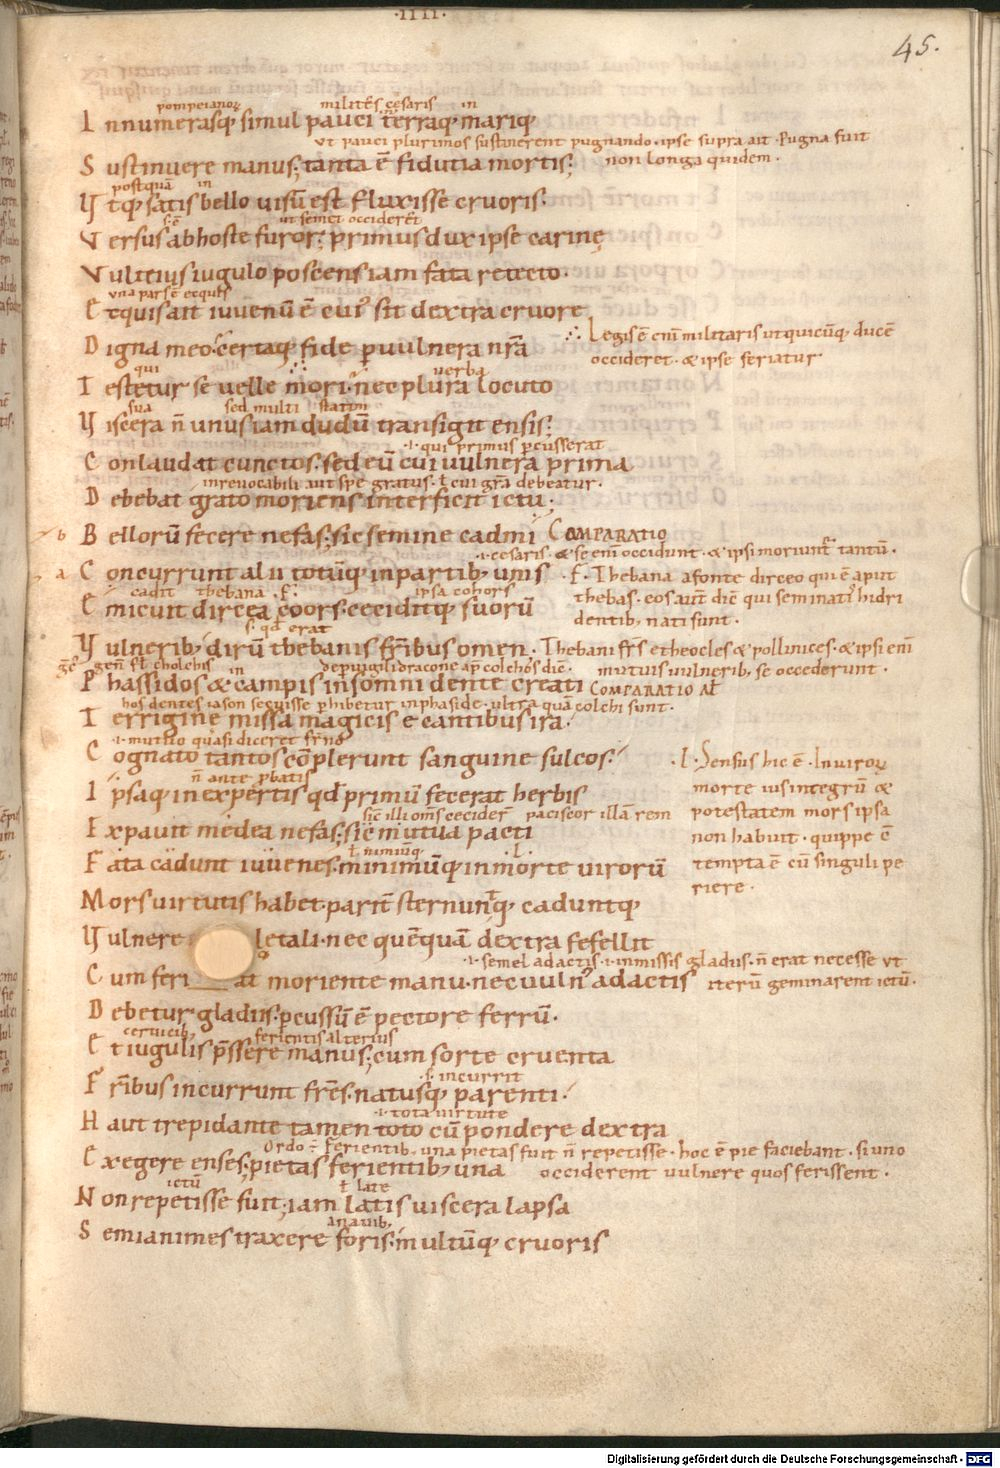 ·IIII·
45.
pompeianoȝ militēs cesaris in
I nnumerasq; simul pauci terraq; mariq;
ut pauci plurimos sustinerent pugnando · ipse supra ait · Pugna fuit
S ustinuere manus; tanta ē fidutia mortis; non longa quidem ·
postquā in
U tq; satis bello uisū est fluxisse cruoris·
s· ē ut semet occiderēt
V ersus ab hoste furor; primus dux ipse carinę
V ulteius iugulo poscens iam fata retecto·
una pars ē ecquis
E cquis ait iuuenū ē cui' sit dextra cruore
Legis ē enī militaris ut quicūq; ducē
D igna meo certaq; fide p uulnera nrā
occideret · & ipse feriatur
qui uerba
T estetur se uelle mori· nec plura locuto
sua sed multi statim
U iscera n̄ unus iam dudū transigit ensis;
·i· qui primus pcusserat
C onlaudat cunctos· sed eū cui uulnera prima
inreuocabili aut spe gratus · ł cui grā debeatur ·
D ebebat grato moriens interficit ictu;
b B ellorū fecere nefas; sic semine cadmi COMPARATIO
·i· cesaris · & se enī occidunt · & ipsi moriunt' tantū ·
a C oncurrunt alii totūq; in partib; unis · f · Thebana a fonte dirceo qui ē aput
cadit thebana · f · ipsa cohors
E micuit dircea coors· ceciditq; suorū
thebas · eos aut̄ dic̄ qui seminati hidri
dentib; nati sunt ·
s· qđ erat
U ulnerib; dirū thebanis frīb; omen · Thebani frs̄ etheocles & pollinices · & ipsi enī
mutuis uulnerib; se occederunt ·
gen̄ ł cholchis in de puigili dracone ap̄ colchos dic̄ ·
P hassidos & campis insomni dente creati COMPARATIO AL̄
hos dentes iason seuisse phibetur in phaside · ultra quā colchi sunt ·
T errigine missa magicis e cantibus ira·
·i· mutuo quasi diceret frn̄o
C ognato tantos cōplerunt sanguine sulcos·
n̄ ante pbatis
I psaq; inexpertis qđ primū fecerat herbis
sic illi om̄s cecider̄ paciscor illā rem
E xpauit medea nefas; sic mutua pacti
ł nimiūq; ·l·
F ata cadunt iuuenes· minimūq; in morte uirorū
·l· Sensus hic ē · In uiroȝ
morte ius integrū &
potestatem mors ipsa
non habuit · quippe ē
tempta ē cū singuli pe
riere ·
M ors uirtutis habet· parit̄ sternunt'q; caduntq;
U ulnere letali· nec quēquā dextra fefellit
·i· semel adactis · i· inmissis gladiis · n̄ erat necesse ut
C um feri at moriente manu· nec uuln' adactis iterū geminarent ictū ·
D ebetur gladiis· pcussū ē pectore ferrū·
ceruicib; ferientis alterius
E t iugulis p̄ssere manus; cum sorte cruenta
·s· incurrit
F rīb; incurrunt frēs· natusq; parenti·
·i· tota uirtute
H aut trepidante tamen toto cū pondere dextra
Ordo ē Ferientib; una pietas fuit n̄ repetisse · hoc ē pie faciebant · si uno
E xegere enses; pietas ferientib; una occiderent uulnere quos ferissent ·
ictū ł late
N on repetisse fuit; iam latis uiscera lapsa
S emianimes traxere foris· multūq; cruoris
Digitalisierung gefördert durch die Deutsche Forschungsgemeinschaft - DFG